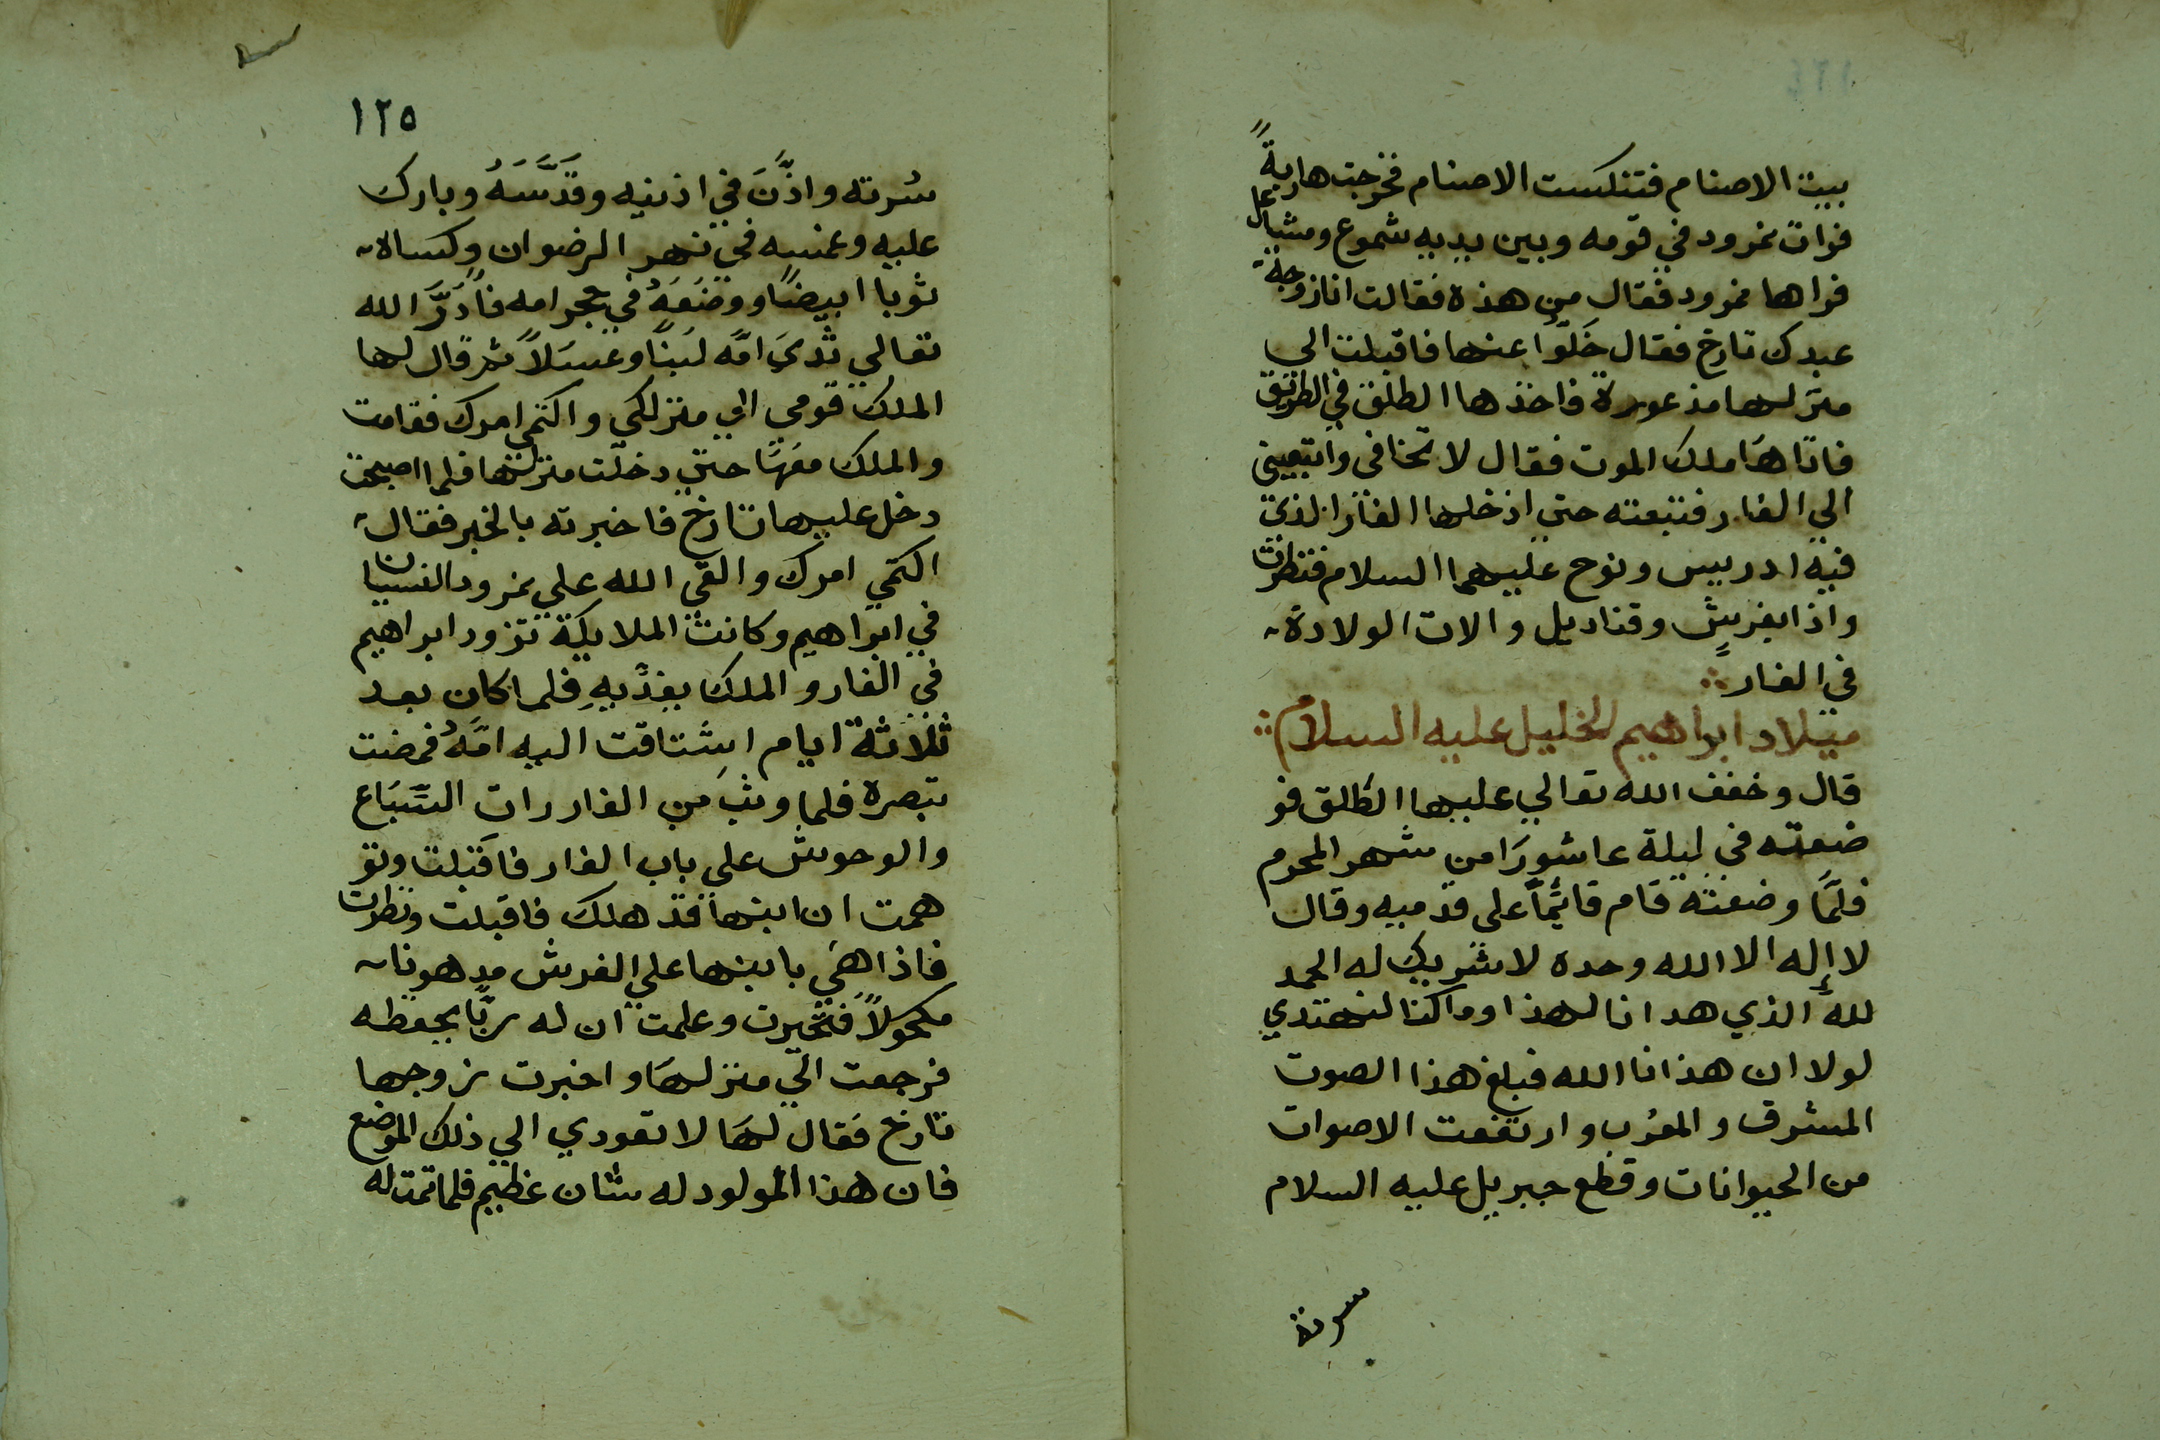 بيت الاصنام فتنكست الاصنام فخرجت هاربةً
فرات نمرود في قومه وبين يديه شموع ومشاعل
فراها نمرود فقال من هذه فقالت انا زوجة
عبدك تارخ فقال خَلّوا عنها فاقبلت الي
منزلها مذعورة فاخذها الطلق في الطريق
فاتاها ملك الموت فقال لا تخافي واتبعيني
الي الغار فتبعته حتي ادخلها الغار الذي
فيه ادريس ونوح عليهما السلام فنظرت
واذا بفرشٍ وقناديل والات الولادة
في الغار
ميلاد ابراهيم الخليل عليه السلام
قال وخفف الله تعالي عليها الطلق فو
ضعته في ليلة عاشورَا من شهر المحرم
فلَمَّا وضعته قام قايمًا على قدميه وقال
لا إله الا الله وحده لا شريك له الحمد
لله الذي هدانا لهذا وما كنا لنهتدي
لولا ان هدانا الله فبلغ هذا الصوت
المشرق والمغرب وارتفعت الاصوات
من الحيوانات وقطع جبريل عليه السلام
سرته
١٢٥
سُرته واذَّنَ في اذنيه وقَدَّسَهُ وبارك
عليه وغمسه في نهر الرضوان وكساه
ثوبا ابيضًا ووضَعَهُ في حجر امه فاَدَرَّ الله
تعالي ثديَ امّه لبَنًا وعسَلاً ثم قال لها
الملك قومي الي منزلكي واكتمي امرك فقامت
والملك معَهَا حتي دخلت منزلها فلما اصبحت
دخل عليها تارخ فاخبرته بالخبر فقال
اكتمي امرك والقي الله علي نمرود النسيان
في ابراهيم وكانت الملايكة تزور ابراهيم
في الغار والملك يغذّيهِ فلما كان بعد
ثلاثة ايام اشتاقت اليه امَّهُ فمضت
تبصره فلما دنت من الغار رات السّبَاع
والوحوش على باب الغار فاقبلت وتو
همت ان ابنها قد هلك فاقبلت ونظرت
فاذا هي بابنها علي الفرش مدهونا
مكحولاً فتحيرت وعلمت ان له ربًّا يحفظه
فرجعت الي منزلها واخبرت زوجها
تارخ فقال لها لا تعودي الي ذلك الموضع
فان هذا المولود له شان عظيم فلما تمت له